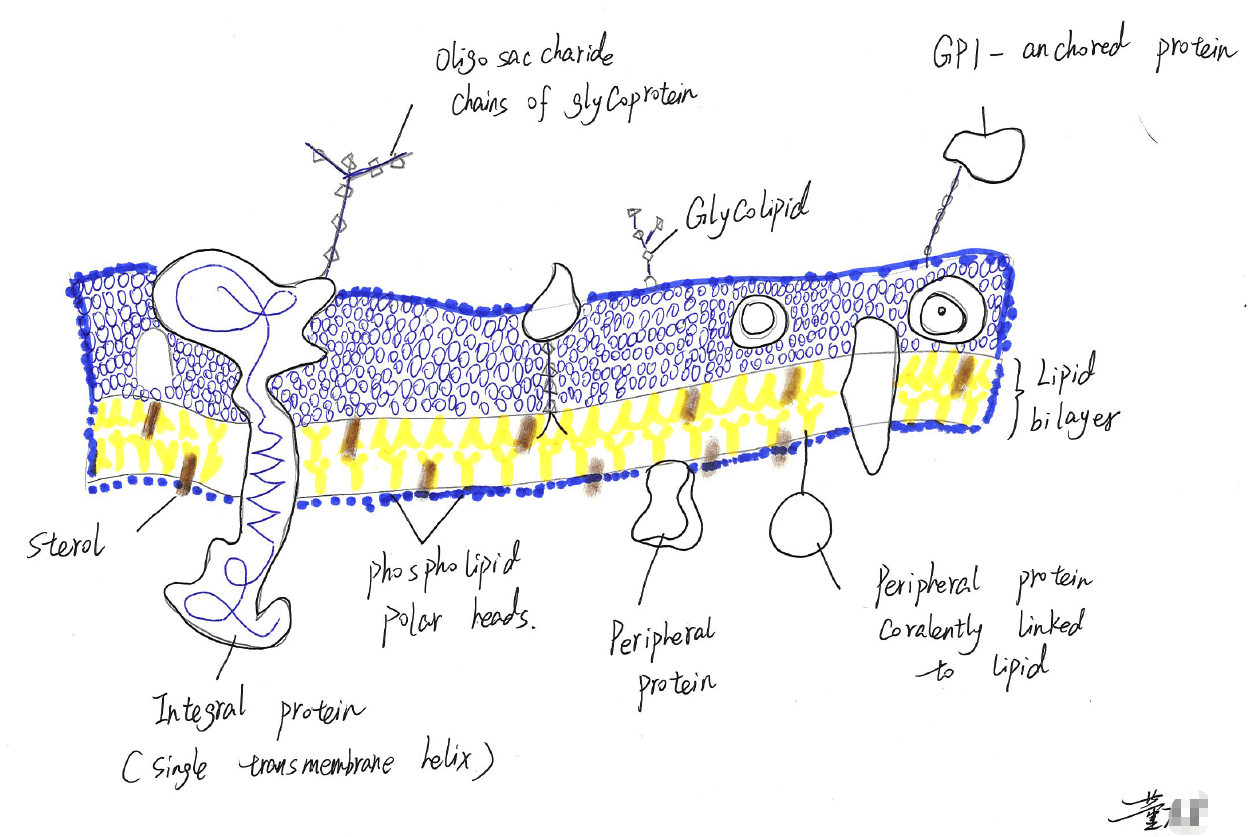 Oligosaccharide
chains of glycoprotein
GPI-anchored protein
Glycolipid
Lipid
bilayer
Sterol
phospholipid
polar heads.
Peripheral
protein
Peripheral protein
Coralently linked
to lipid
Integral protein
(single transmembrane helix)
董